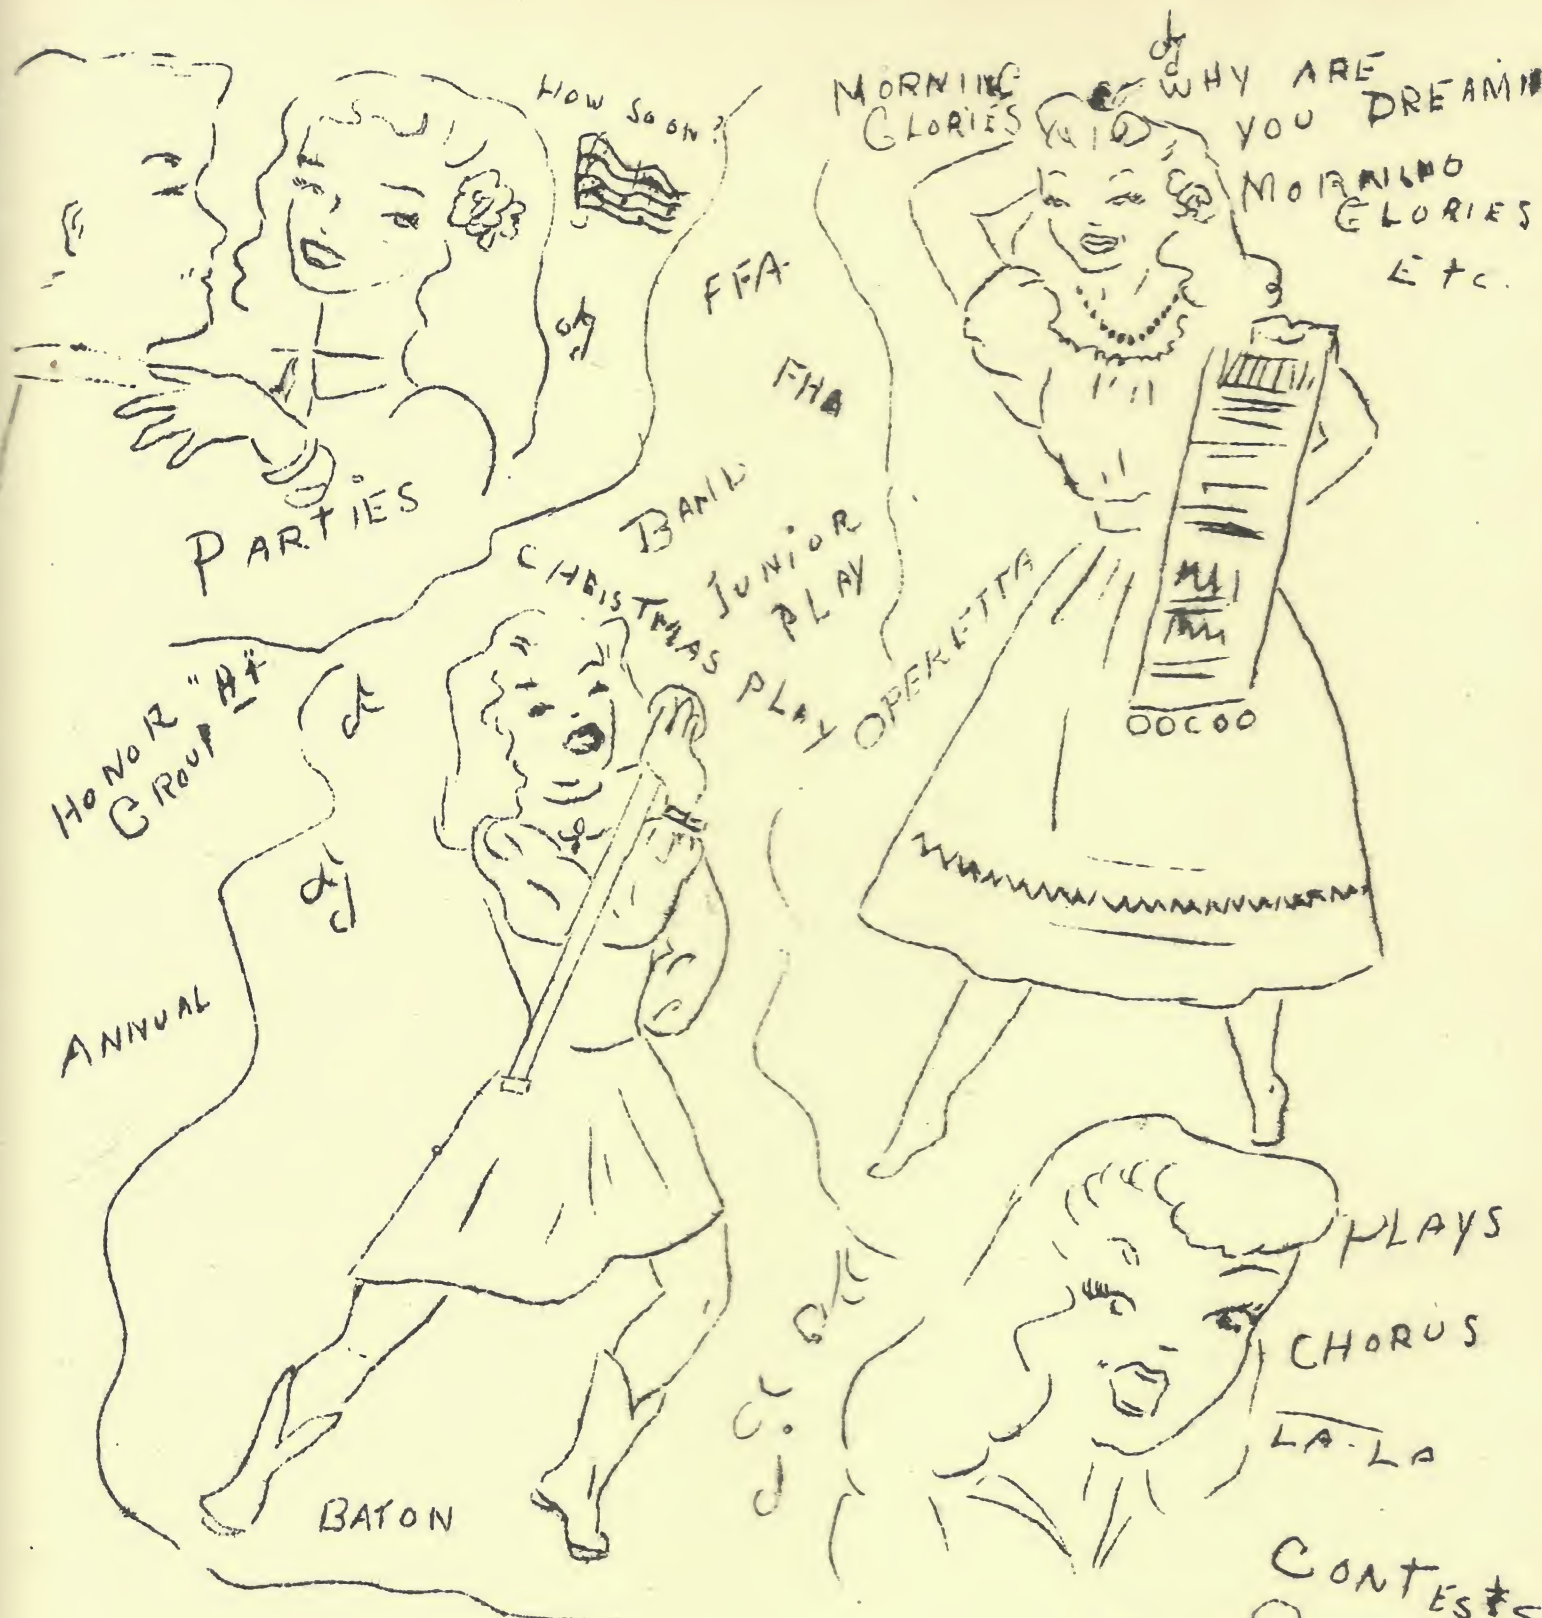 HOW SOON?
MORNING
GLORIES
WHY ARE
YOU DREAMIN
MORNING
GLORIES
Etc.
FFA
FHA
PARTIES
BAND
JUNIOR
PLAY
CHRISTMAS PLAY
OPERETTA
HONOR "A+"
GROUP
ANNUAL
BATON
PLAYS
CHORUS
LA-LA
CONTEStS